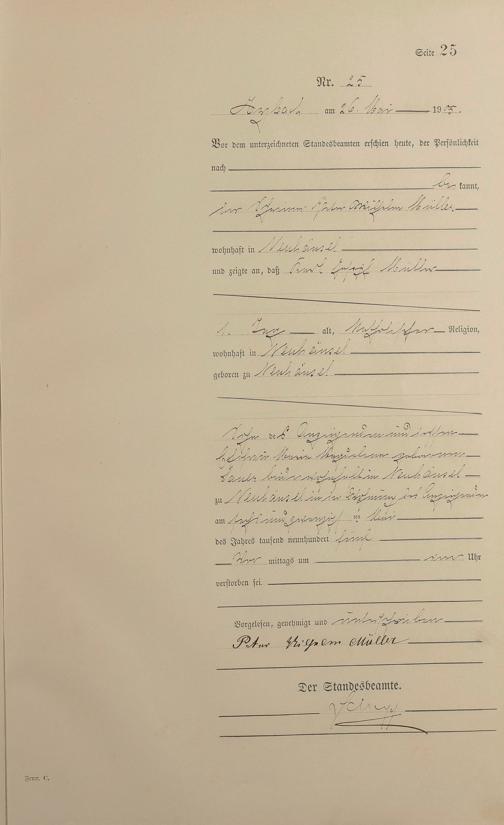 Seite 25
Nr. 25
am 26. Mai 1905.
Vor dem unterzeichneten Standesbeamten erschien heute, der Persönlichkeit
nach
be kannt,
der Peter Wilhelm Müller
wohnhaft in Neuhäusel
und zeigte an, daß Josef Müller
1. Tag alt, katholischer Religion,
wohnhaft in Neuhäusel
geboren zu Neuhäusel
Sohn des Anzeigenden und dessen
Ehefrau Maria geborenen
beide wohnhaft in Neuhäusel
zu Neuhäusel in der Wohnung des Anzeigenden
am Mai
des Jahres tausend neunhundert fünf
Vor mittags um Uhr
verstorben sei.
Vorgelesen, genehmigt und unterschrieben
Peter Wilhelm Müller
Der Standesbeamte.
Form. C.